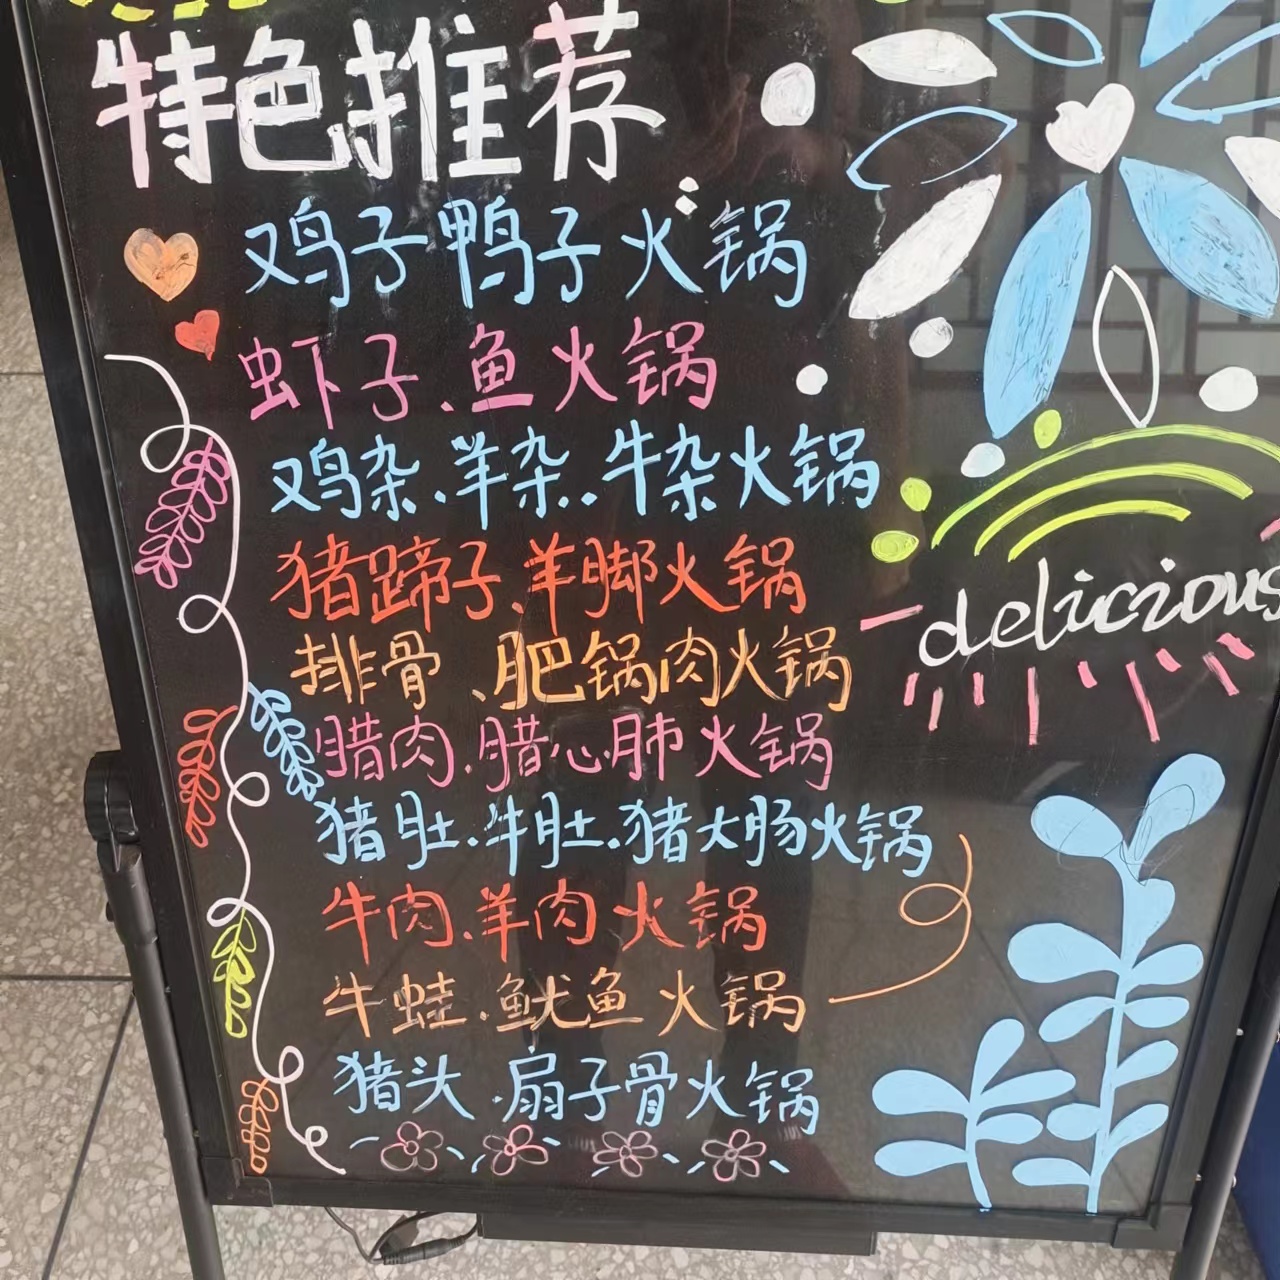 特色推荐
鸡子鸭子火锅
虾子、鱼火锅
鸡杂、羊杂、牛杂火锅
猪蹄子、羊脚火锅
排骨、肥锅肉火锅
腊肉、腊心肺火锅
猪肚、牛肚、猪大肠火锅
牛肉、羊肉火锅
牛蛙、鱿鱼火锅
猪头、扇子骨火锅
delicious